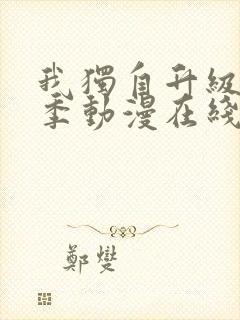 我獨自升級
季動漫在綫
鄭燮